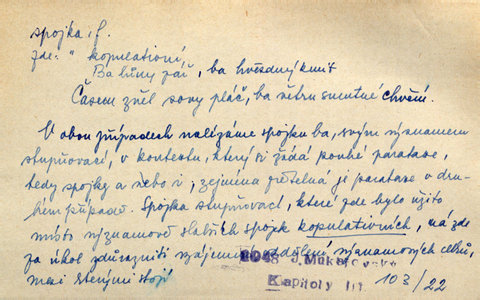 spojka, f.
zde: "kopulativní,
Ba luny zář, ba hvězdný kmit
Časem zněl sovy pláč, ba větru smutné chvění.
V obou případech nalézáme spojku ba, svým významem
stupňovací, v kontextu, který si žádá pouhé paratase,
tedy spojky a nebo i, zejména zřetelná je paratase v dru-
hém případě. Spojka stupňovací, které zde bylo užito
místo významově slabších spojek kopulativních, má zde
za úkol zdůrazniti vzájemné oddělení významových celků,
mezi kterými stojí
8048 J. Mukařovský
Kapitoly III. 103/22